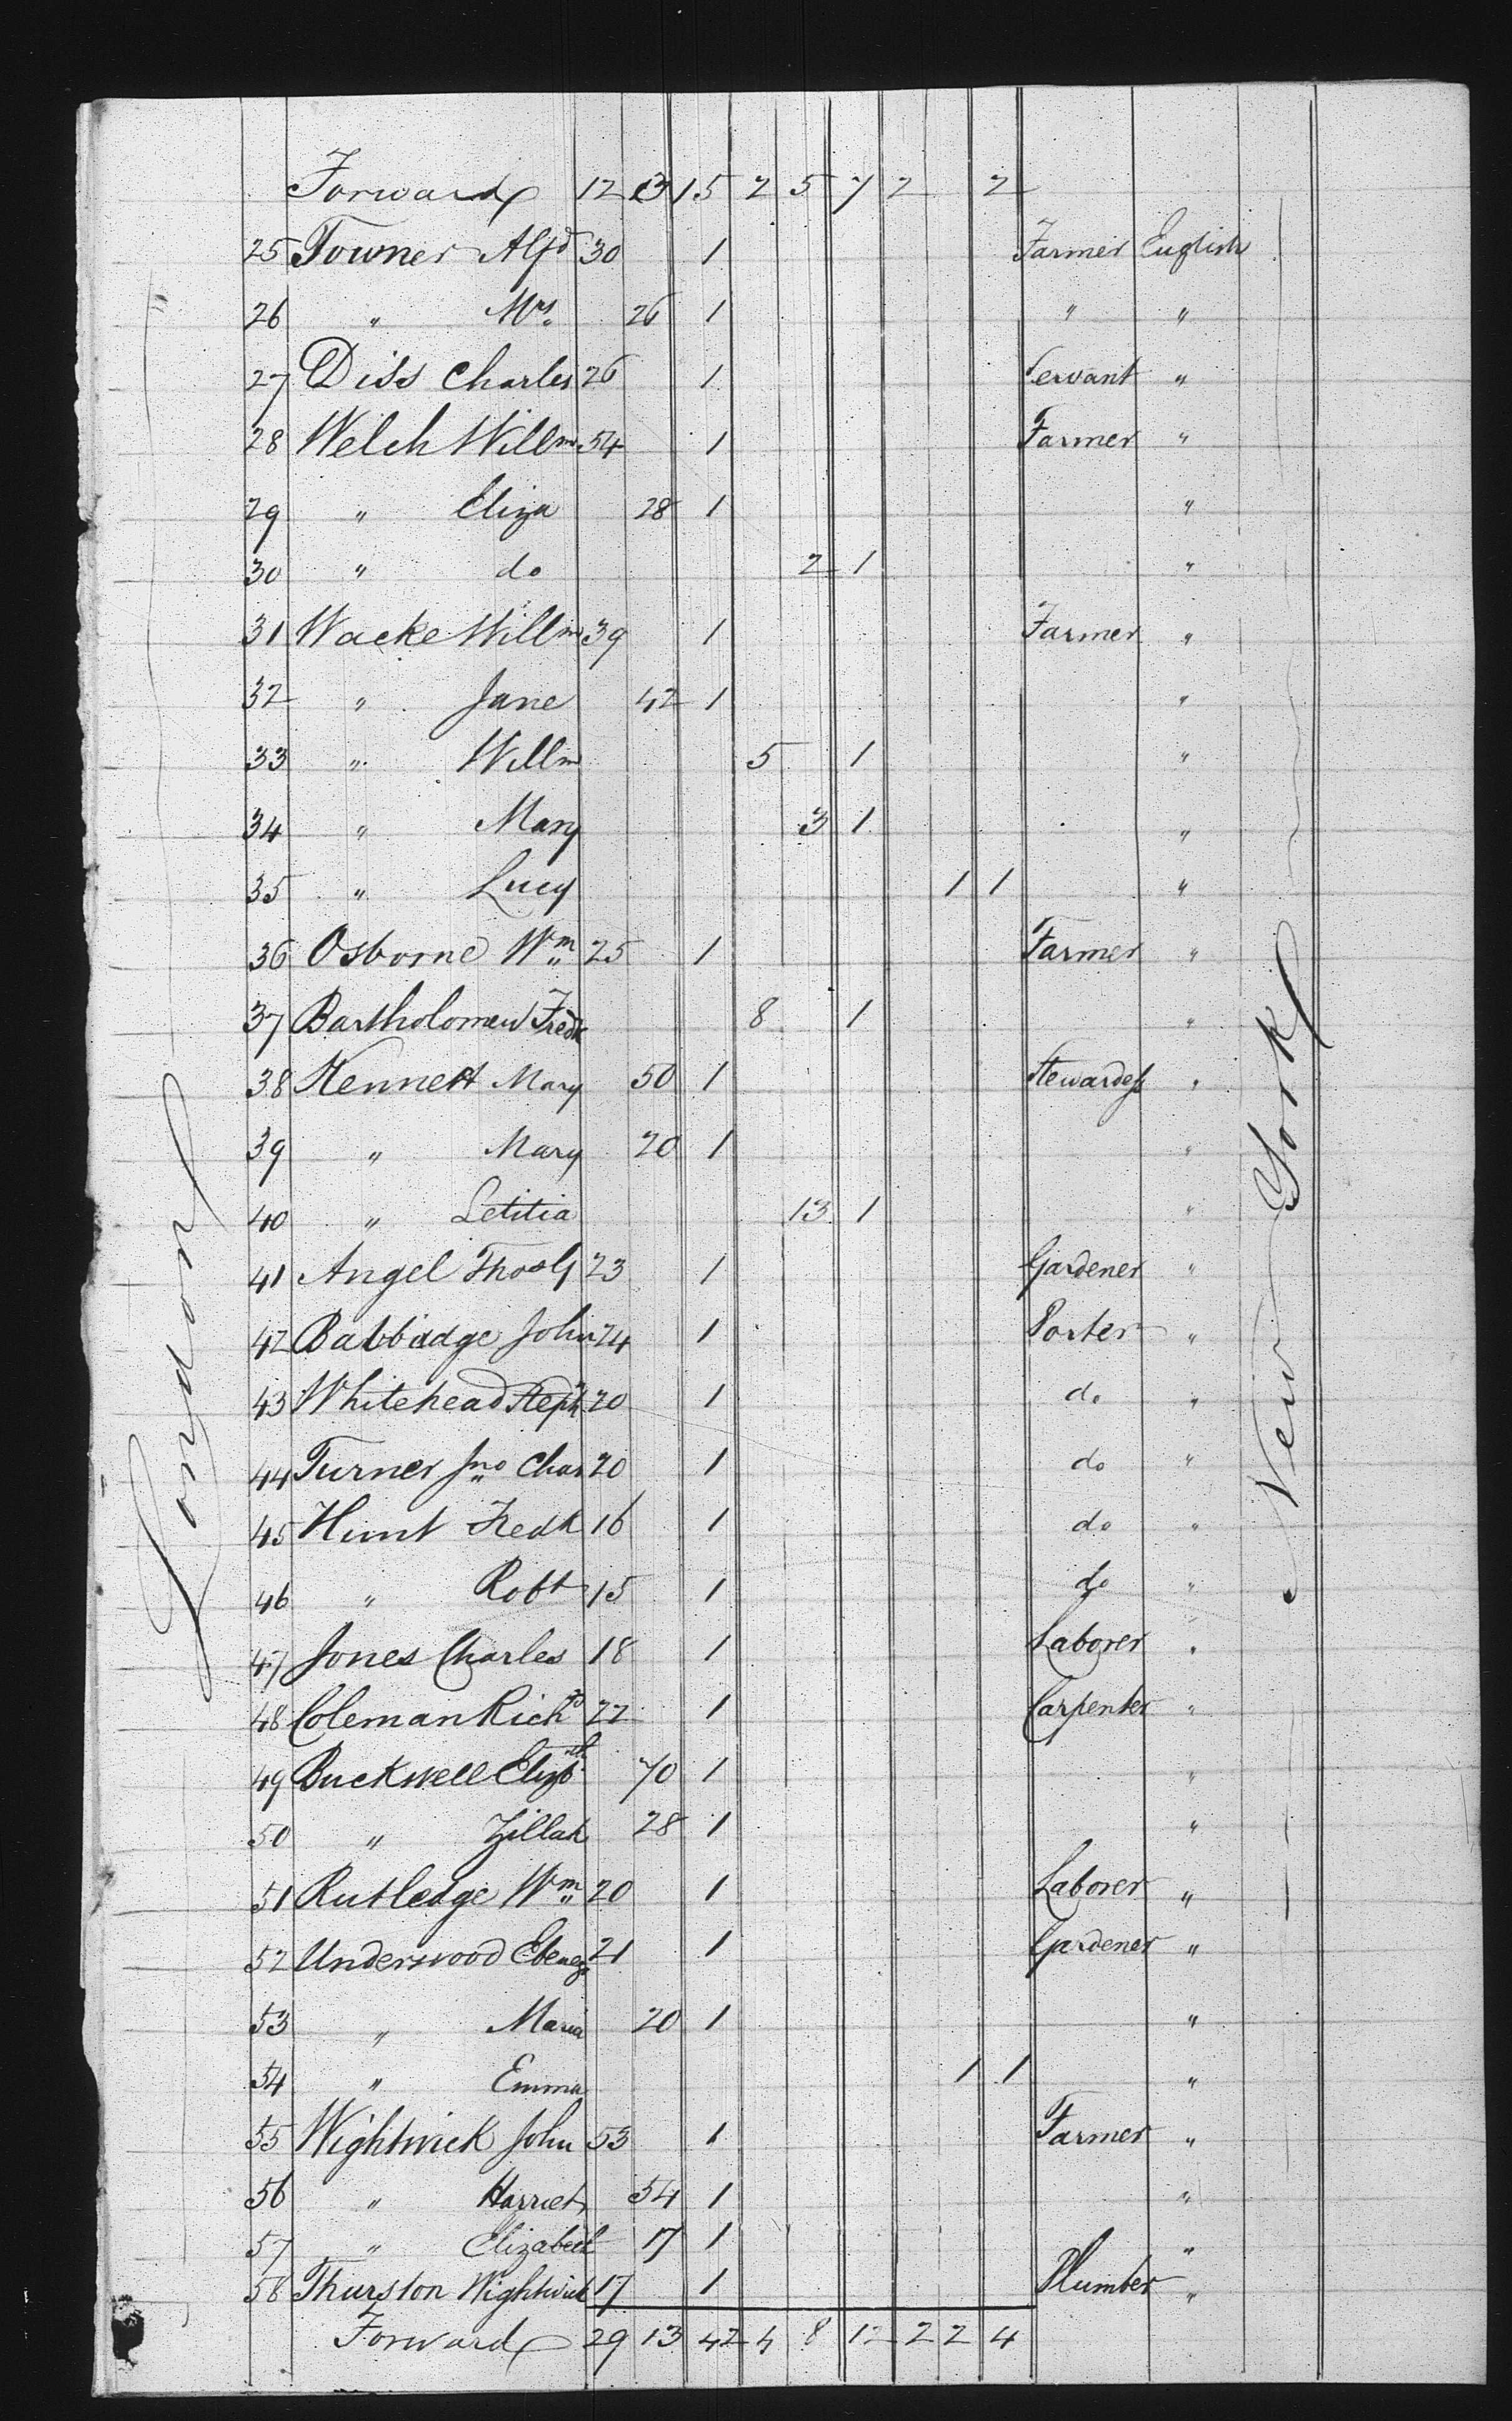 Forward 12 3 15 2 5 7 2 2
25 Towner Alfd 30 1 Farmer English
26 " Mrs. 26 1 " "
27 Diss Charles 26 1 Servant "
28 Welch Willm 54 1 Farmer "
29 " Eliza 28 1 "
30 " do 2 1 "
31 Wacke Willm 39 1 Farmer "
32 " Jane 42 1 "
33 " Willm 5 1 "
34 " Mary 3 1 "
35 " Lucy 1 1 "
36 Osborne Wm 25 1 Farmer "
37 Bartholomew Fredk 8 1 "
38 Kennett Mary 50 1 Stewardess "
39 " Mary 20 1 "
40 " Letitia 13 1 "
41 Angel Thos G 23 1 Gardener "
42 Babbadge John 24 1 Porter "
43 Whitehead Stephn 20 1 do "
44 Turner Jno Chas 20 1 do "
45 Hunt Fredk 16 1 do "
46 " Robt 15 1 do "
47 Jones Charles 18 1 Laborer "
48 Coleman Richd 22 1 Carpenter "
49 Buckwell Elizbth 70 1 "
50 " Zillah 28 1 "
51 Rutledge Wm 20 1 Laborer "
52 Underwood Ebenezr 21 1 Gardener "
53 " Maria 20 1 "
54 " Emma 1 1 "
55 Wightwick John 53 1 Farmer "
56 " Harriet 54 1 "
57 " Elizabeth 17 1 "
58 Thurston Wightwick 17 1 Plumber "
Forward 29 13 42 4 8 12 2 2 4
London
New York